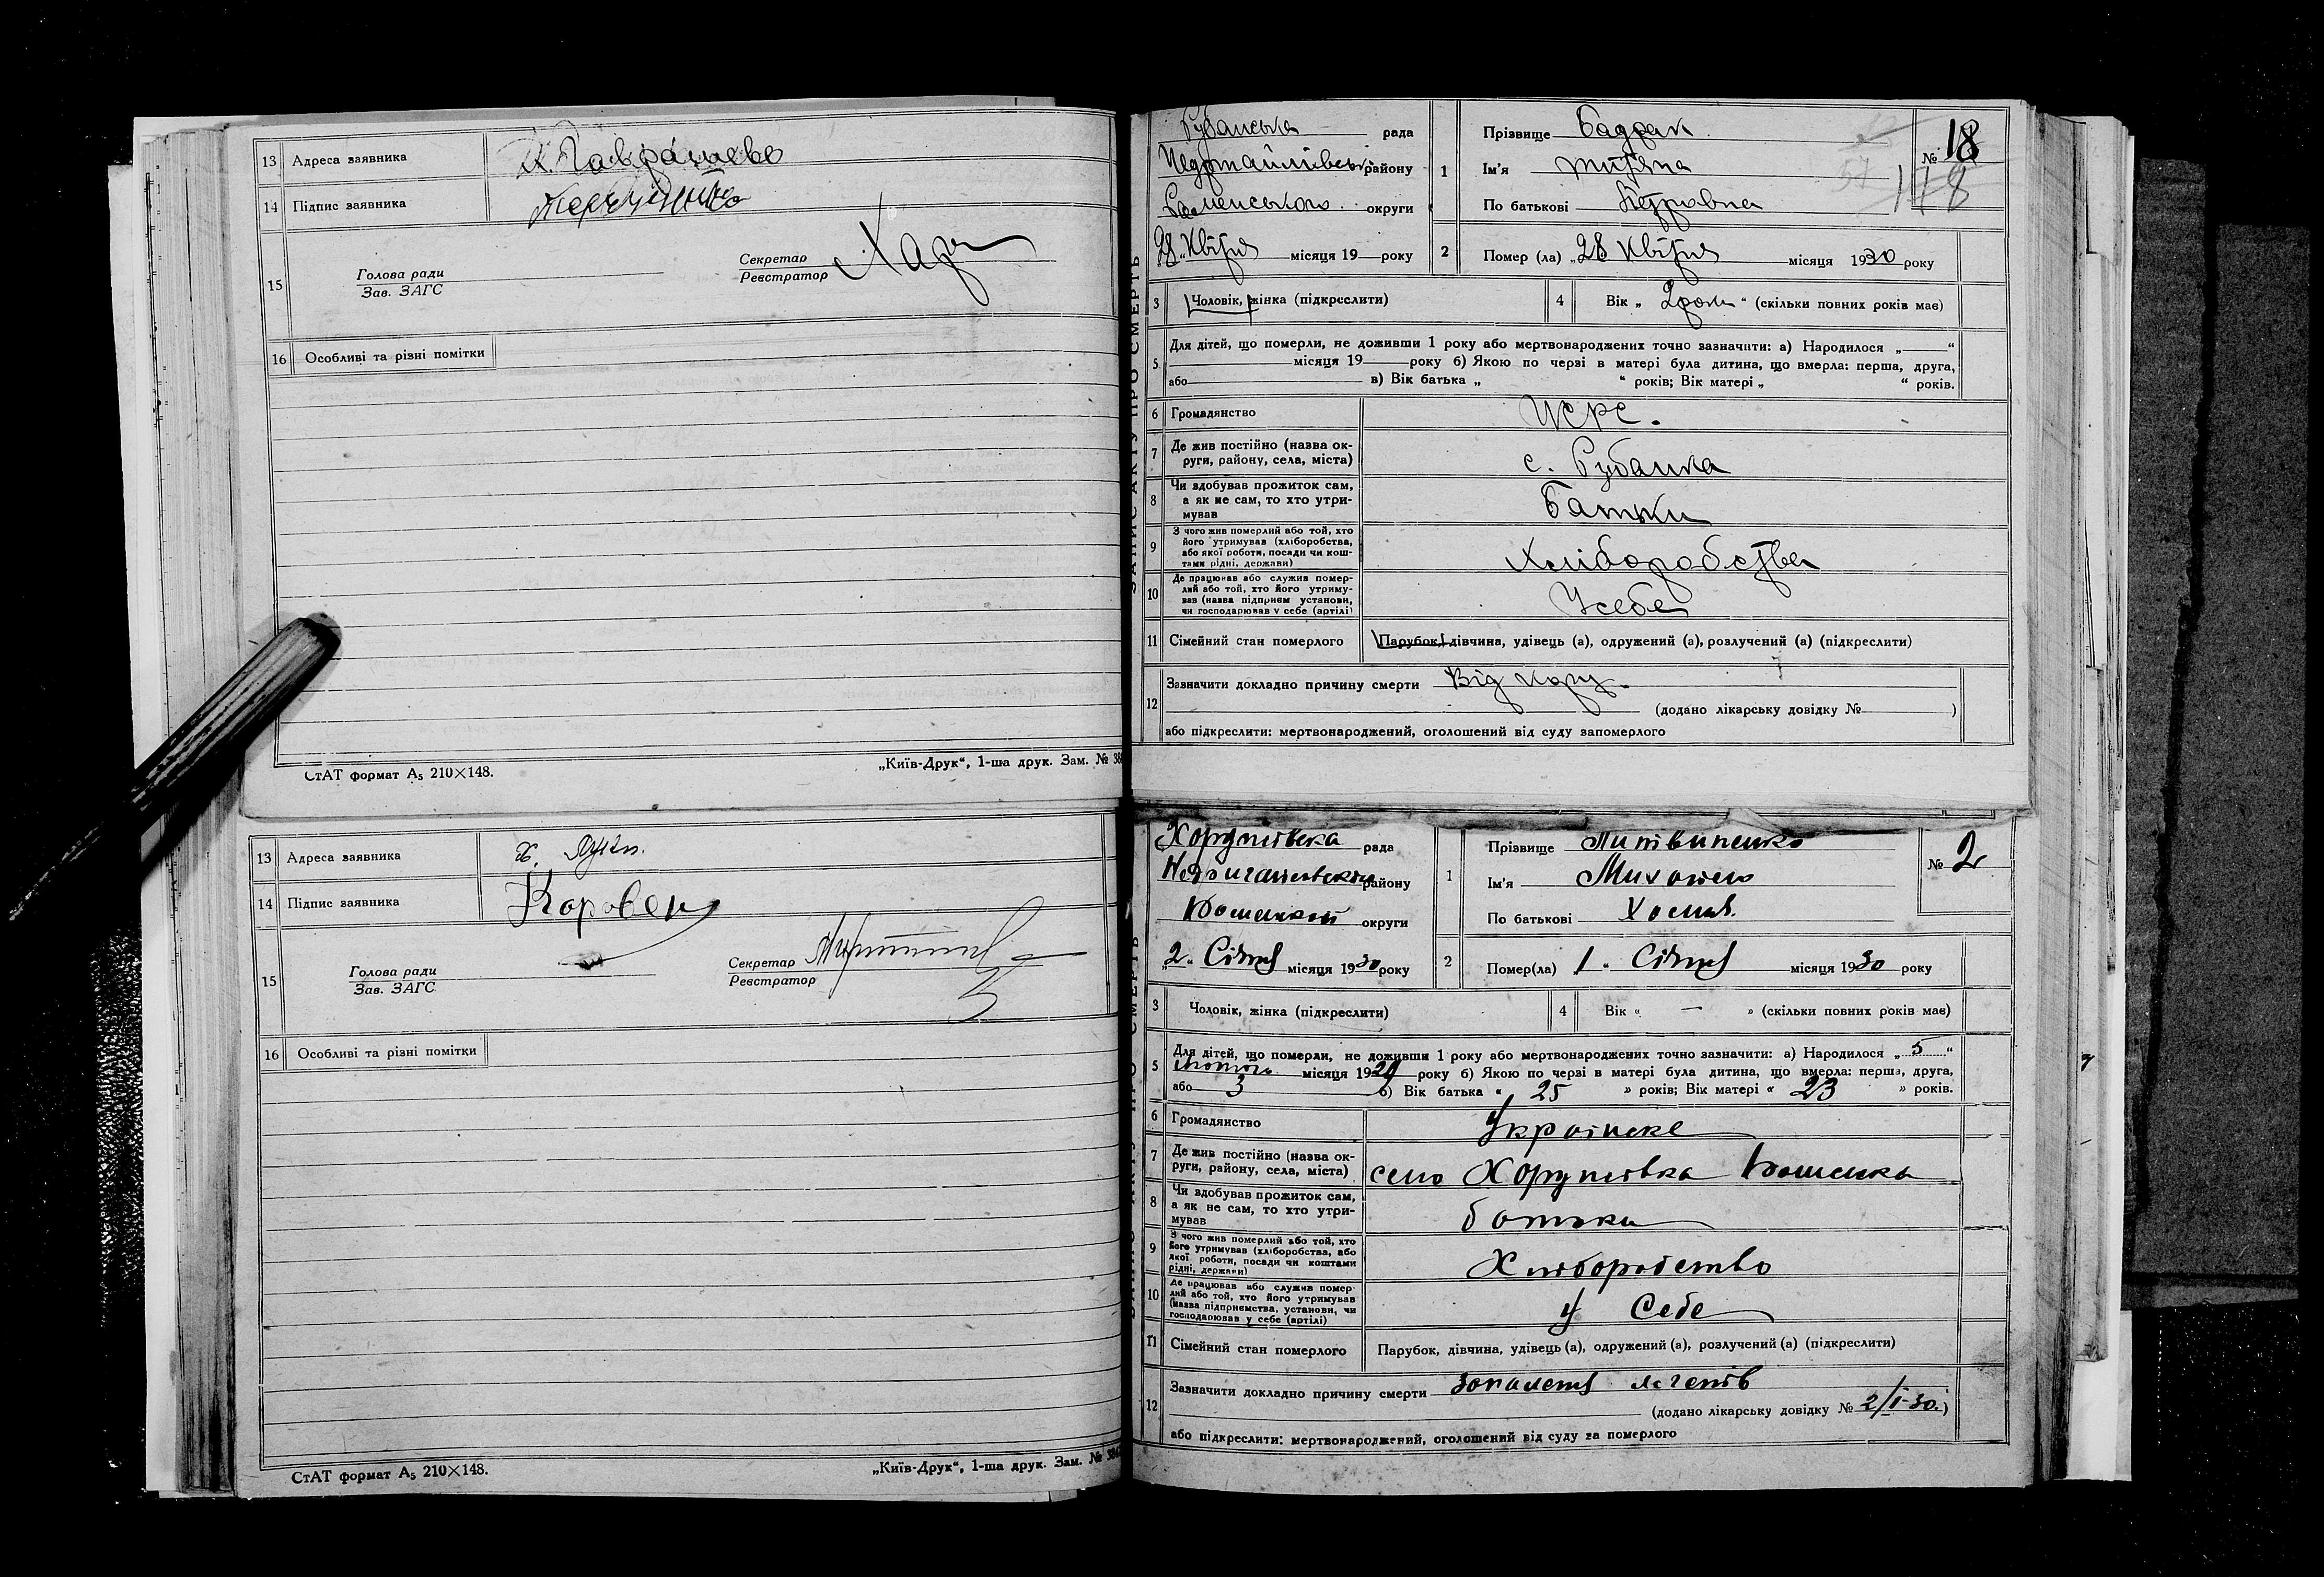 13 Адреса заявника
14 Підпис заявника
15 Голова ради
Зав. ЗАГС
Секретар
Реєстратор
16 Особливі та різні помітки
СтАТ формат А5 210×148.
„Київ-Друк“, 1-ша друк. Зам. №
13 Адреса заявника х.
14 Підпис заявника
15 Голова ради
Зав. ЗАГС
Секретар
Реєстратор
16 Особливі та різні помітки
СтАТ формат А5 210×148.
„Київ-Друк“, 1-ша друк. Зам. №
ЗАПИС АКТУ ПРО СМЕРТЬ
Рубанська рада
району
Роменського округи
„28“ Квітня місяця 19 року
1 Прізвище Бадрак
Ім'я
По батькові Петровна
№ 18
178
57
2 Помер (ла) „28 Квітня місяця 1930 року
3 Чоловік, жінка (підкреслити)
4 Вік „ 2 роки “ (скільки повних років має)
5 Для дітей, що померли, не доживши 1 року або мертвонароджених точно зазначити: а) Народилося „ “
місяця 19 року б) Якою по черзі в матері була дитина, що вмерла: перша, друга,
або в) Вік батька „ “ років; Вік матері „ “ років.
6 Громадянство УСРС.
7 Де жив постійно (назва ок-
руги, району, села, міста) с. Рубанка
8 Чи здобував прожиток сам,
а як не сам, то хто утри-
мував Батьки
9 З чого жив померлий або той, хто
його утримував (хліборобства,
або якої роботи, посади чи кош-
тами рідні, держави) Хліборобства
10 Де працював або служив помер-
лий або той, хто його утриму-
вав (назва підприєм установи,
чи господарював у себе (артілі) Усебе
11 Сімейний стан померлого Парубок, дівчина, удівець (а), одружений (а), розлучений (а) (підкреслити)
12 Зазначити докладно причину смерти Від кору.
(додано лікарську довідку № )
або підкреслити: мертвонароджений, оголошений від суду запомерлого
Хорунівка рада
району
округи
„2“ Січня місяця 1930 року
1 Прізвище Литвиненко
Ім'я
По батькові
№ 2
2 Помер(ла) 1 “ Січня місяця 1930 року
3 Чоловік, жінка (підкреслити)
4 Вік “ — » (скільки повних років має)
5 Для дітей, що померли, не доживши 1 року або мертвонароджених точно зазначити: а) Народилося „ 5 “
лютого місяця 1929 року б) Якою по черзі в матері була дитина, що вмерла: перша, друга,
або 3 в) Вік батька “ 25 » років; Вік матері “ 23 » років.
6 Громадянство Українске
7 Де жив постійно (назва ок-
руги, району, села, міста) село Хорунівка
8 Чи здобував прожиток сам,
а як не сам, то хто утри-
мував батьки
9 З чого жив померлий або той, хто
його утримував (хліборобства, або
якої роботи, посади чи коштами
рідні, держави) Хліборобство
10 Де працював або служив помер-
лий або той, хто його утримував
(назва підприємства, установи, чи
господарював у себе (артілі) у Себе
11 Сімейний стан померлого Парубок, дівчина, удівець (а), одружений (а), розлучений (а) (підкреслити)
12 Зазначити докладно причину смерти запалення легенів
(додано лікарську довідку № 2/I-30.)
або підкреслити: мертвонароджений, оголошений від суду за померлого